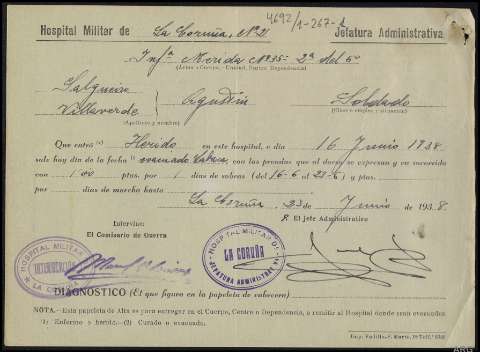 4692/1-267-A
Hospital Militar de La Coruña, Nº 2 Jefatura Administrativa
Infª Merida Nº 35 - 2ª del 5º
Salgueiro
Villaverde Agustín Soldado
(Apellidos y nombre)
Que entró (1) Herido en este hospital, el día 16 Junio 1938
sale hoy día de la fecha (2) con las prendas que al dorso se expresan y va socorrido
con 1'00 ptas. por 1 días de sobras (del 16-6 al 23-6) y ptas.
por días de marcha hasta
La Coruña, 23 de Junio de 1938
El Jefe Administrativo
Intervine:
El Comisario de Guerra
HOSPITAL MILITAR
INTERVENCIÓN
LA CORUÑA
HOSPITAL MILITAR DE
LA CORUÑA
JEFATURA ADMINISTRATIVA
DIAGNOSTICO (El que figura en la papeleta de cabecera)
NOTA.—Esta papeleta de Alta es para entregar en el Cuerpo, Centro o Dependencia, o remitir al Hospital donde sean evacuados
(1) Enfermo o herido.—(2) Curado o evacuado.
ARG